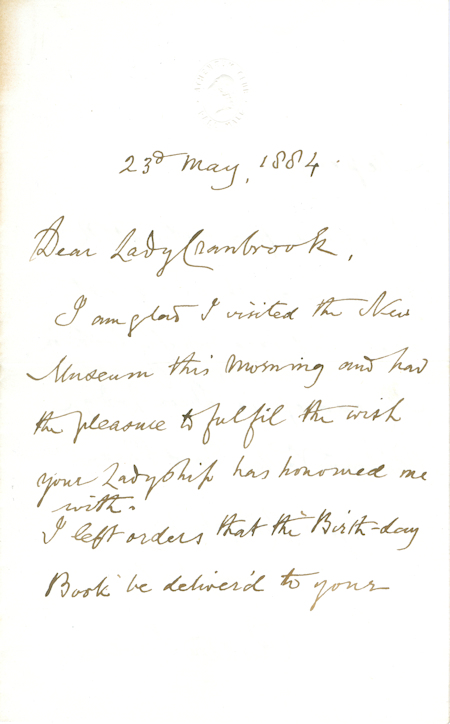 23d May, 1884.
Dear Lady Cranbrook,
I am glad I visited the New
Museum this morning and had
the pleasure to fulfil the wish
your Ladyship has honoured me
with.
I left orders that the Birth-day
Book be deliver'd to your